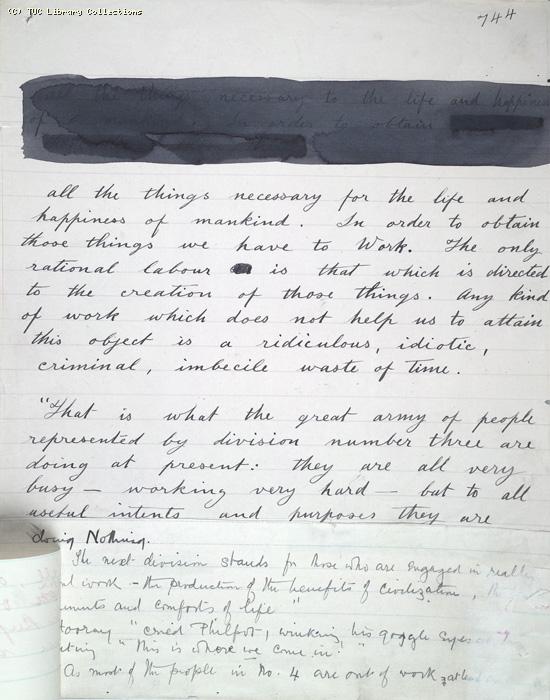 (C) TUC Library Collections
744
all the things necessary to the life and happiness
of mankind. In order to obtain
all the things necessary for the life and
happiness of mankind. In order to obtain
those things we have to Work. The only
rational labour is that which is directed
to the creation of those things. Any kind
of work which does not help us to attain
this object is a ridiculous, idiotic,
criminal, imbecile waste of time.
"That is what the great army of people
represented by division number three are
doing at present: they are all very
busy — working very hard — but to all
useful intents and purposes they are
doing Nothing.
The next division stands for those who are engaged in really
work – the production of the benefits of civilization,
and comforts of life"
"cried Philpot, winking his goggle eyes
"this is where we come in."
As most of the people in No. 4 are out of work